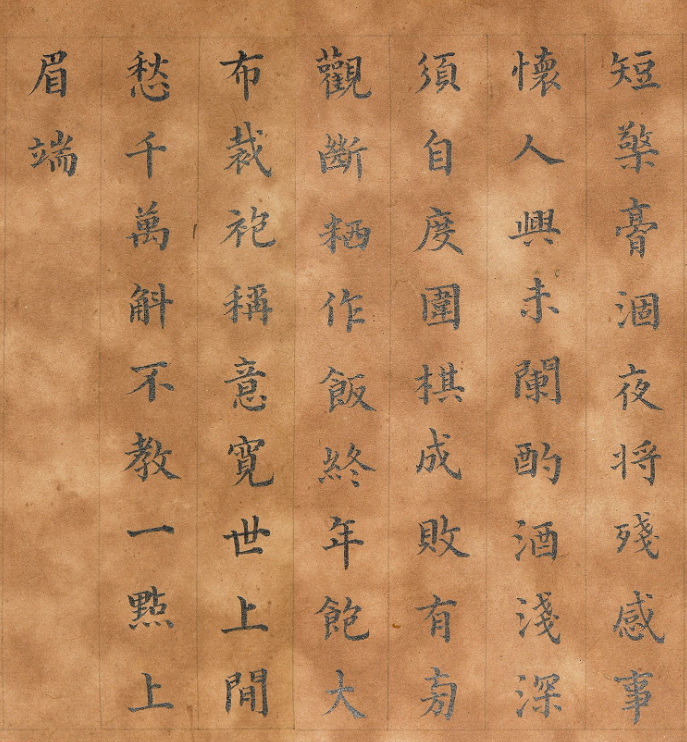 短檠膏涸夜将殘感事
懷人興未闌酌酒淺深
須自度圍棋成敗有旁
觀斷粞作飯終年飽大
布裁袍稱意寛世上閒
愁千萬斛不教一點上
眉端